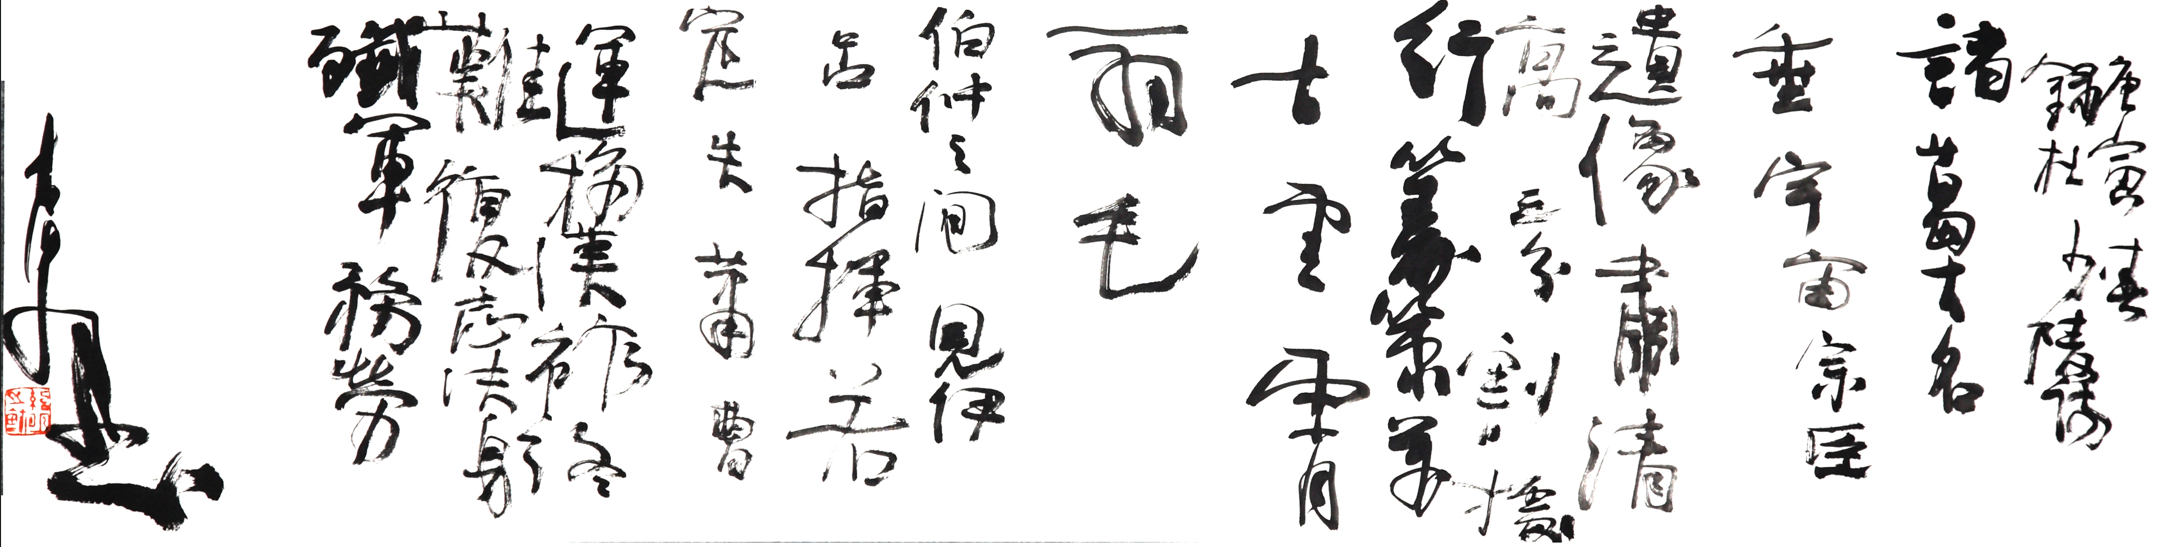 庚寅春
錄杜少陵詩
諸葛大名
垂宇宙宗臣
遺像肅清
高三分割據
紆籌策萬
古雲霄
一羽毛
伯仲之間見伊
呂指揮若
定失蕭曹
運移漢祚終
難復志決身
殲軍務勞